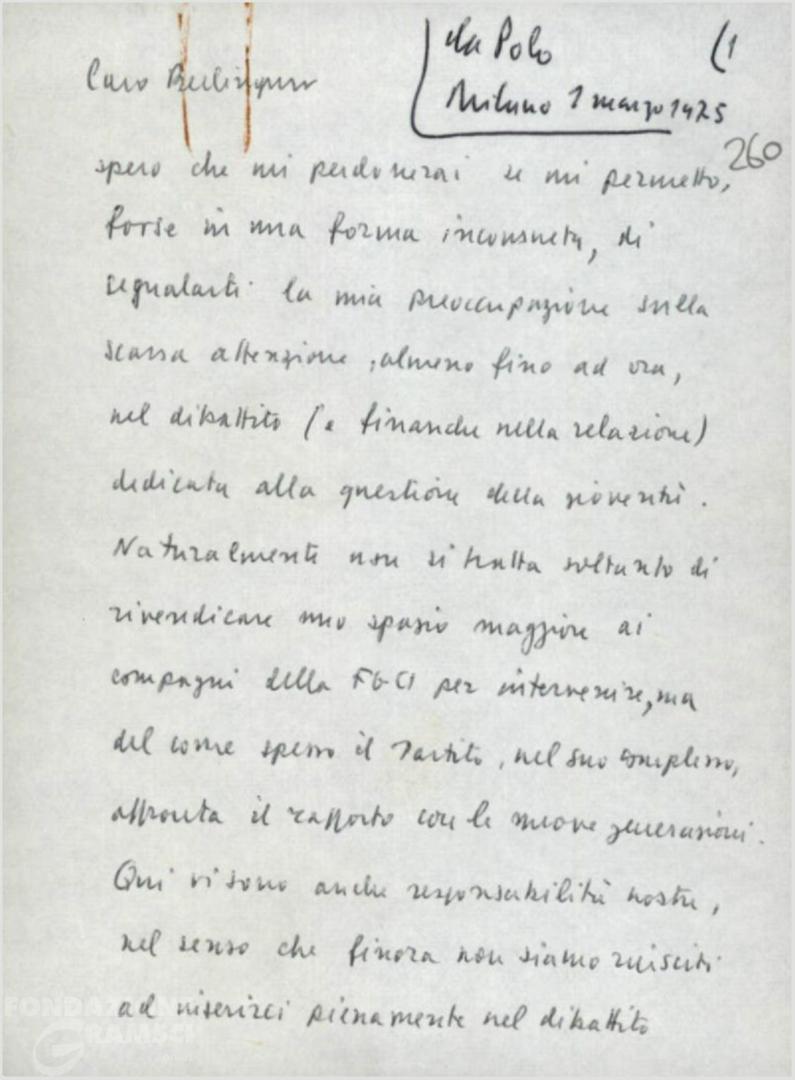 da Polo
(1
Milano 1 marzo 1975
Caro Berlinguer
260
spero che mi perdonerai se mi permetto,
forse in una forma inconsueta, di
segnalarti la mia preoccupazione sulla
scarsa attenzione, almeno fino ad ora,
nel dibattito (e finanche nella relazione)
dedicata alla questione della gioventù.
Naturalmente non si tratta soltanto di
rivendicare uno spazio maggiore ai
compagni della FGCI per intervenire, ma
del come spesso il Partito, nel suo complesso,
affronta il rapporto con le nuove generazioni.
Qui vi sono anche responsabilità nostre,
nel senso che finora non siamo riusciti
ad inserirci pienamente nel dibattito
FONDAZIONE
GRAMSCI